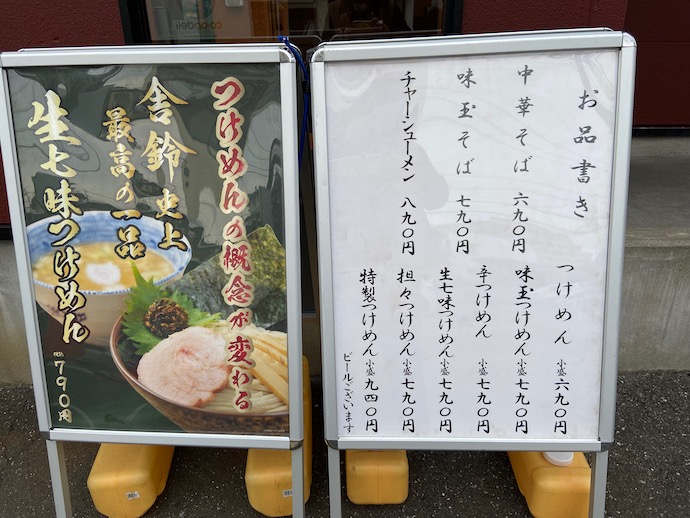 co-codeli
つけめんの概念が変わる
舎鈴史上
最高の一品
生七味つけめん
税込
790円
お品書き
中華そば 六九〇円
味玉そば 七九〇円
チャーシューメン 八九〇円
つけめん 小盛 六九〇円
味玉つけめん 小盛 七九〇円
辛つけめん 小盛 七九〇円
生七味つけめん 小盛 七九〇円
担々つけめん 小盛 七九〇円
特製つけめん 小盛 九四〇円
ビールございます